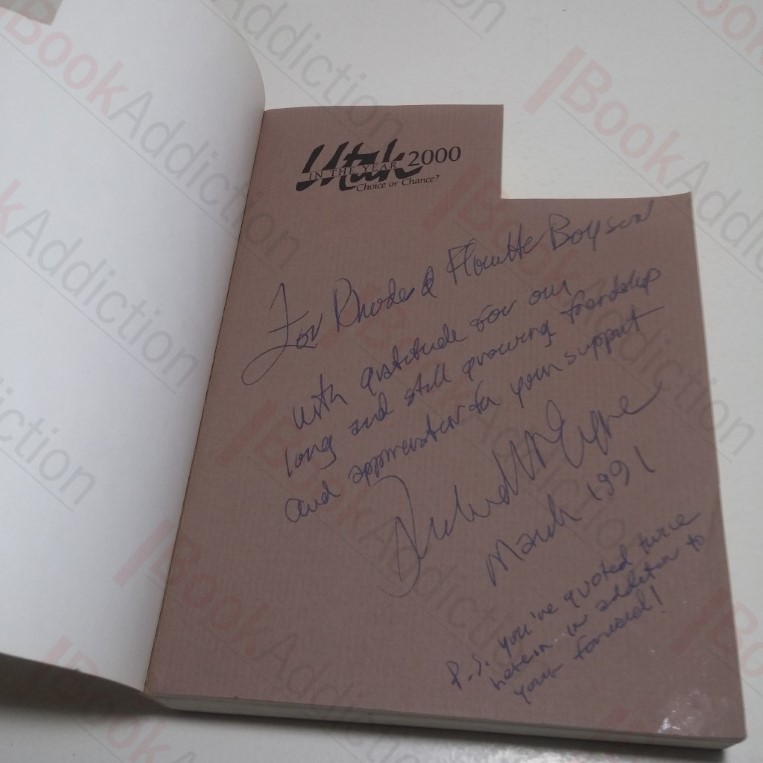 Utah 2000
IN THE YEAR
Choice or Chance?
For Rhoda & Boyson
with gratitude for our
long and still growing friendship
and appreciation for your support
March 1991
P.S. you've quoted twice
herein in addition to
your forward!
BookAddiction